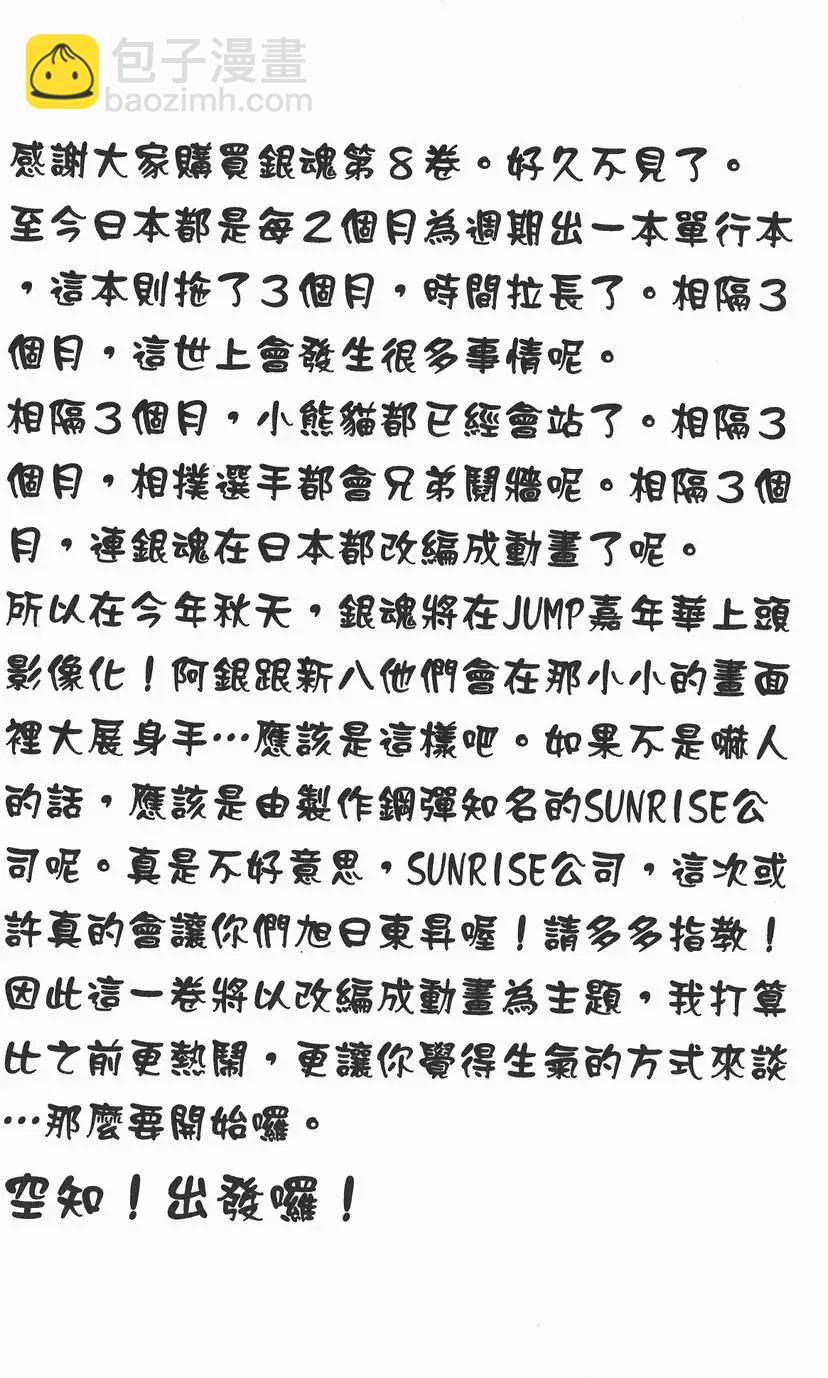 包子漫畫
baozimh.com
感謝大家購買銀魂第8卷。好久不見了。
至今日本都是每2個月為週期出一本單行本
，這本則拖了3個月，時間拉長了。相隔3
個月，這世上會發生很多事情呢。
相隔3個月，小熊貓都已經會站了。相隔3
個月，相撲選手都會兄弟鬩牆呢。相隔3個
月，連銀魂在日本都改編成動畫了呢。
所以在今年秋天，銀魂將在JUMP嘉年華上頭
影像化！阿銀跟新八他們會在那小小的畫面
裡大展身手…應該是這樣吧。如果不是嚇人
的話，應該是由製作鋼彈知名的SUNRISE公
司呢。真是不好意思，SUNRISE公司，這次或
許真的會讓你們旭日東昇喔！請多多指教！
因此這一卷將以改編成動畫為主題，我打算
比之前更熱鬧，更讓你覺得生氣的方式來談
…那麼要開始囉。
空知！出發囉！